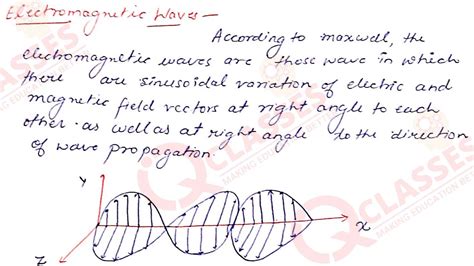 Electromagnetic Waves -
According to maxwell, the
electromagnetic waves are those wave in which
there are sinusoidal variation of electric and
magnetic field vectors at right angle to each
other as well as at right angle to the direction
of wave propagation.
Y
X
Z
QCLASSES
MAKING EDUCATION BET
QCLASSES
MAKING EDUCATION BET